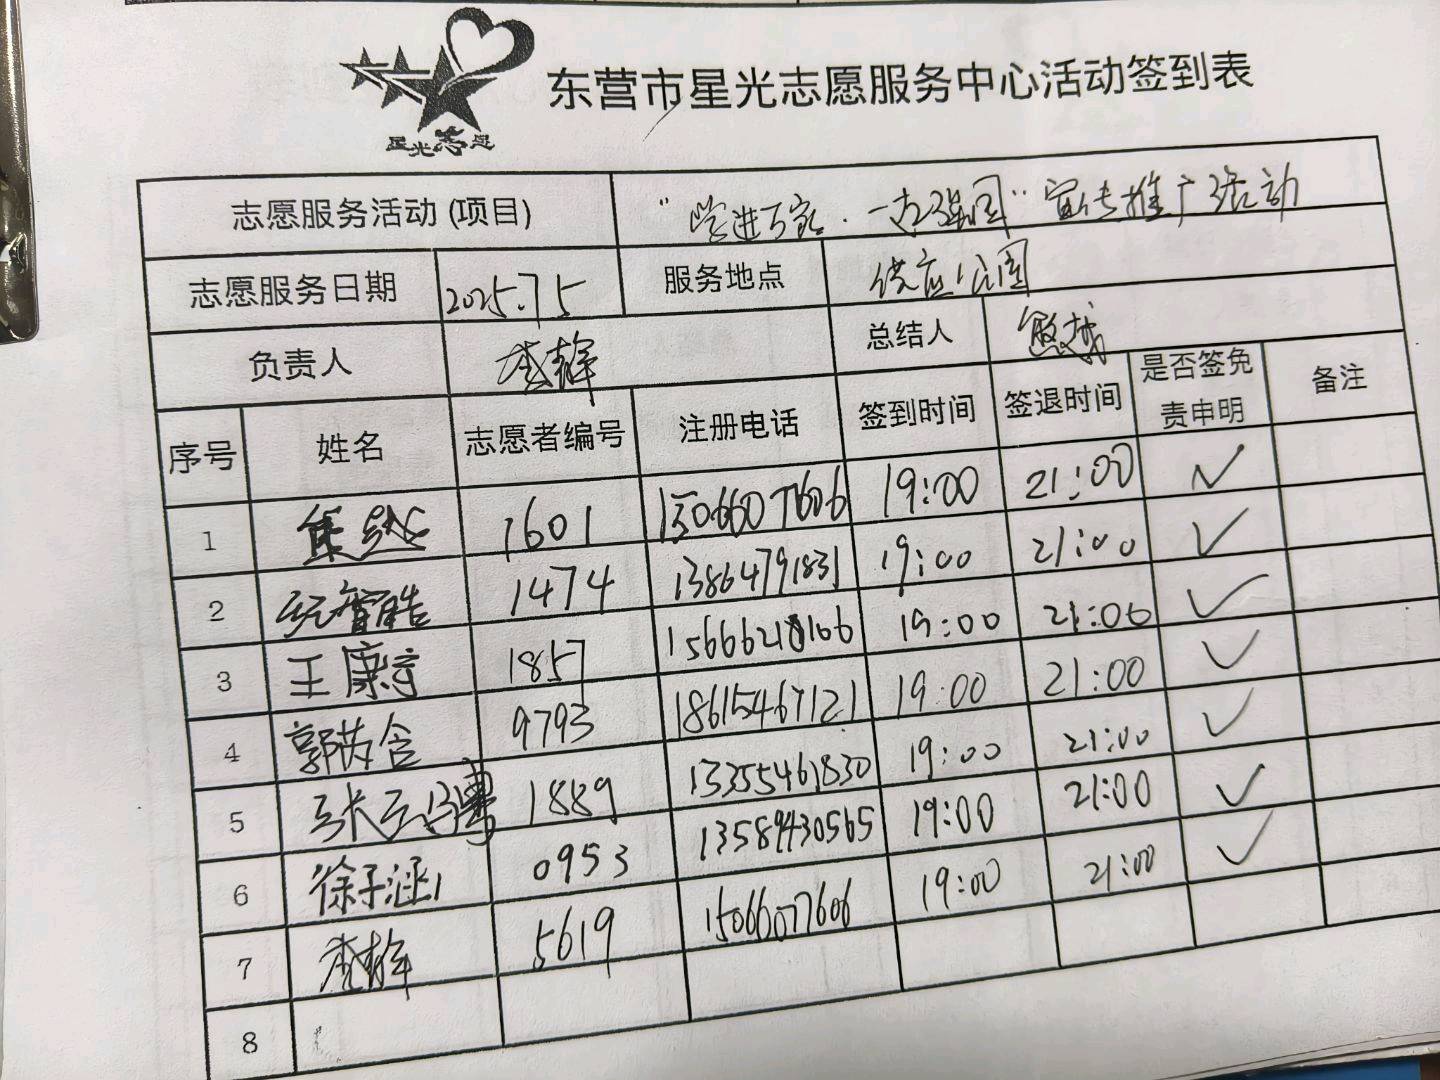 东营市星光志愿服务中心活动签到表
星光志愿
志愿服务活动(项目) "学进万家·一起强国"宣传推广活动
志愿服务日期 2025.7.5 服务地点 供应公园
负责人 李辉 总结人
序号 姓名 志愿者编号 注册电话 签到时间 签退时间 是否签免责申明 备注
1 1601 15066077606 19:00 21:00 ✓
2 1474 13864791831 19:00 21:00 ✓
3 王康宇 1857 15666218166 19:00 21:00 ✓
4 郭芮含 9793 18615467121 19:00 21:00 ✓
5 1889 13355461830 19:00 21:00 ✓
6 徐子涵 0953 13589430565 19:00 21:00 ✓
7 李辉 5619 15066077606 19:00 21:00 ✓
8